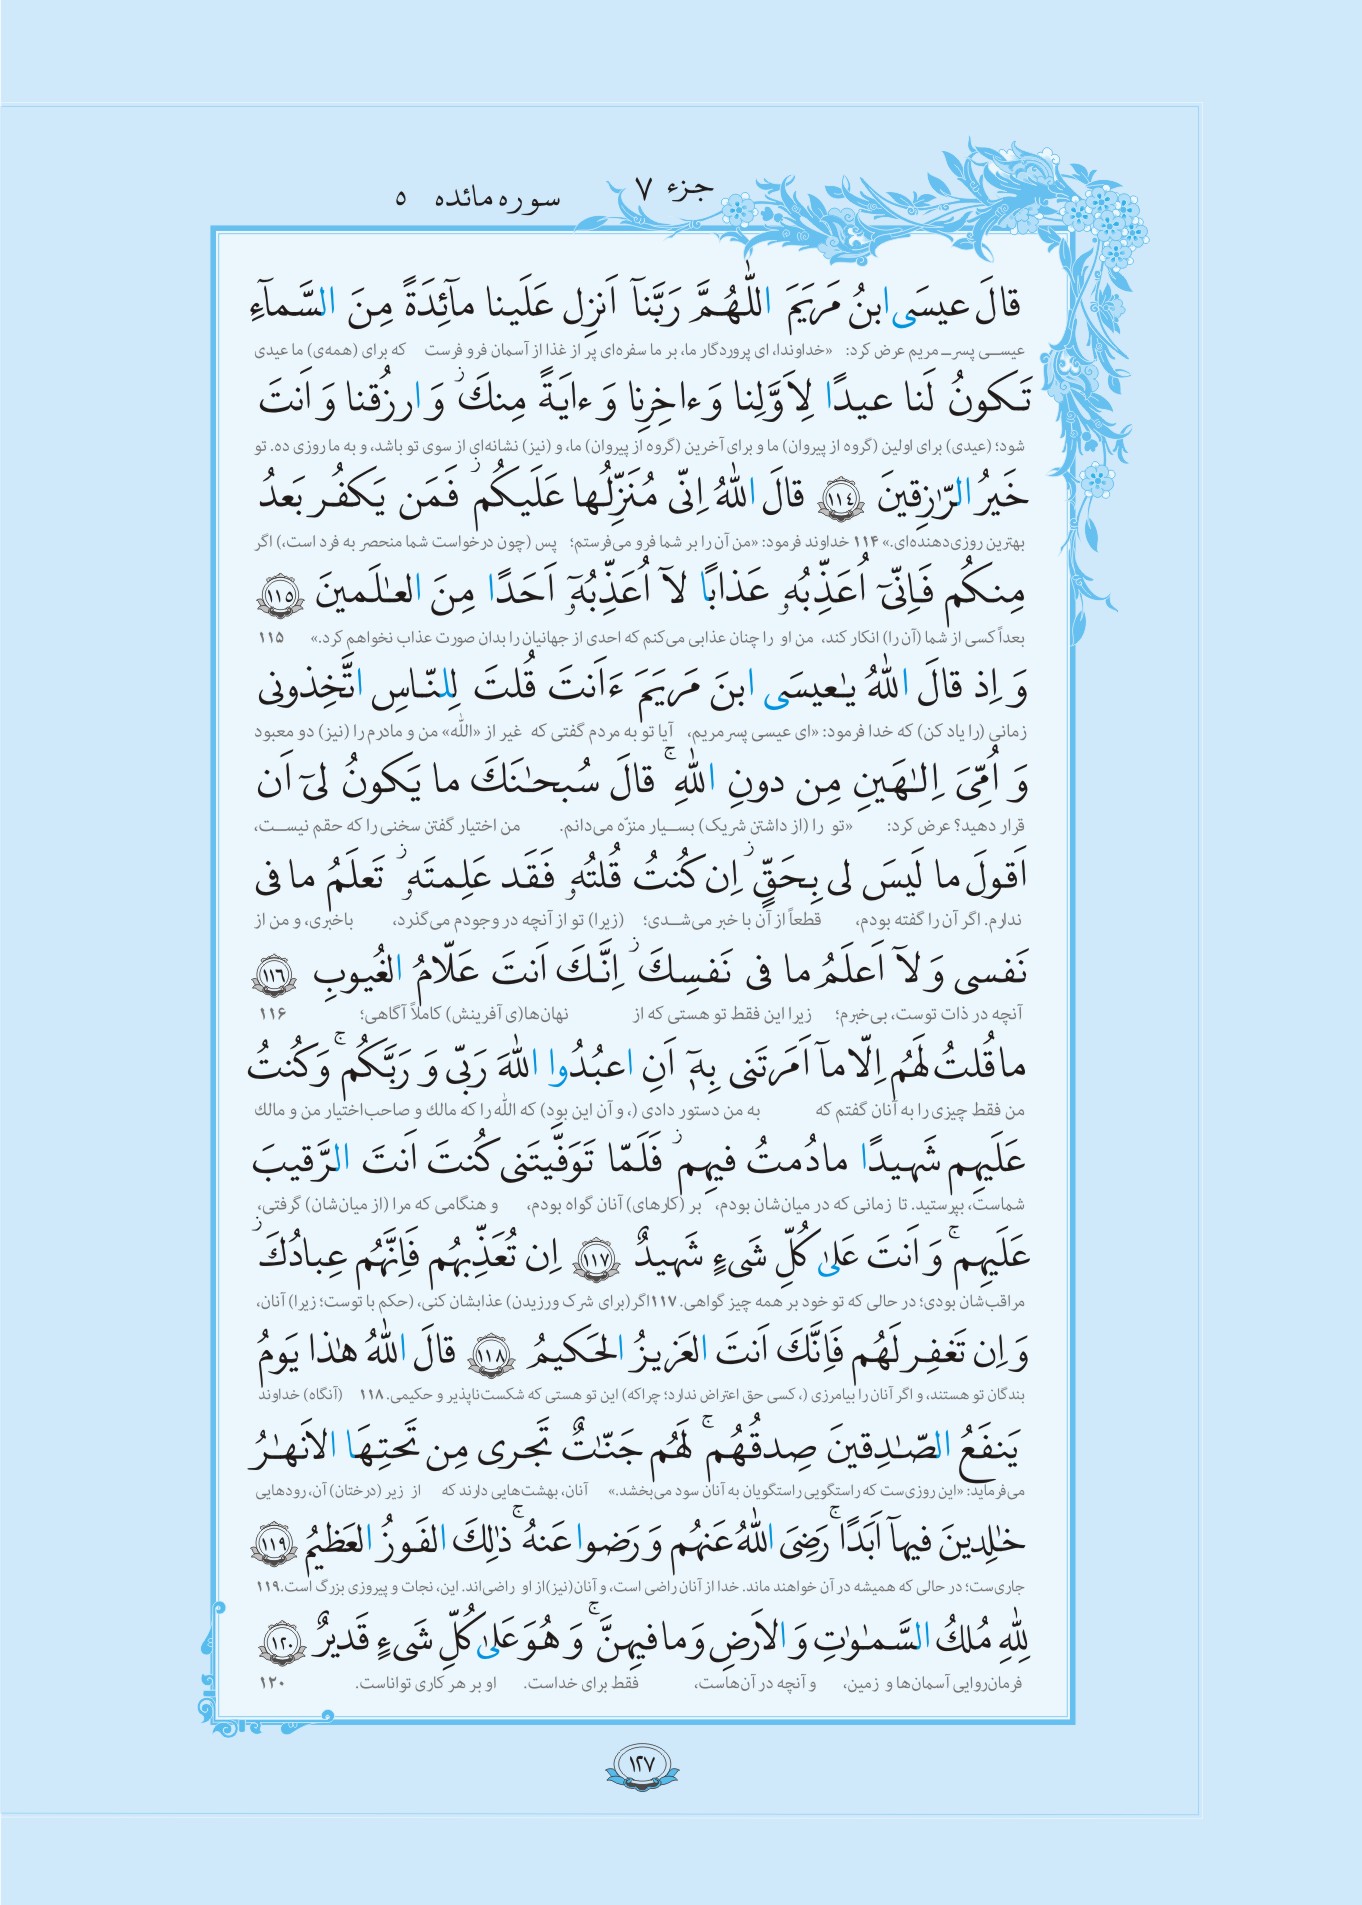 جزء ۷
سوره مائده ۵
قالَ عیسَى ابنُ مَریَمَ اللّٰهُمَّ رَبَّنآ اَنزِل عَلَینا مآئِدَةً مِنَ السَّمآءِ
عیسی پسر مریم عرض کرد: «خداوندا، ای پروردگار ما، بر ما سفره‌ای پر از غذا از آسمان فرو فرست که برای (همه‌ی) ما عیدی
تَکونُ لَنا عیدًا لِاَوَّلِنا وَ ءاخِرِنا وَ ءایَةً مِنكَ ۖ وَ ارزُقنا وَ اَنتَ
شود؛ (عیدی) برای اولین (گروه از پیروان) ما و برای آخرین (گروه از پیروان) ما، و (نیز) نشانه‌ای از سوی تو باشد، و به ما روزی ده. تو
خَیرُ الرّٰزِقینَ ١١٤ قالَ اللّٰهُ اِنّی مُنَزِّلُها عَلَیکُم ز فَمَن یَکفُر بَعدُ
بهترین روزی‌دهنده‌ای.» ۱۱۴ خداوند فرمود: «من آن را بر شما فرو می‌فرستم؛ پس (چون درخواست شما منحصر به فرد است،) اگر
مِنکُم فَاِنّیٓ اُعَذِّبُهٗ عَذابًا لآ اُعَذِّبُهٗٓ اَحَدًا مِنَ العـٰلَمینَ ١١٥
بعداً کسی از شما (آن را) انکار کند، من او را چنان عذابی می‌کنم که احدی از جهانیان را بدان صورت عذاب نخواهم کرد.» ۱۱۵
وَ اِذ قالَ اللّٰهُ یـٰعیسَى ابنَ مَریَمَ ءَاَنتَ قُلتَ لِلنّاسِ اتَّخِذونی
زمانی (را یاد کن) که خدا فرمود: «ای عیسی پسر مریم، آیا تو به مردم گفتی که غیر از «اللّٰه» من و مادرم را (نیز) دو معبود
وَ اُمِّیَ اِلـٰهَینِ مِن دونِ اللّٰهِ ج قالَ سُبحـٰنَكَ ما یَکونُ لیٓ اَن
قرار دهید؟ عرض کرد: «تو را (از داشتن شریک) بسیار منزّه می‌دانم. من اختیار گفتن سخنی را که حقم نیست،
اَقولَ ما لَیسَ لی بِحَقٍّ ز اِن کُنتُ قُلتُهٗ فَقَد عَلِمتَهٗ ز تَعلَمُ ما فی
ندارم. اگر آن را گفته بودم، قطعاً از آن با خبر می‌شدی؛ (زیرا) تو از آنچه در وجودم می‌گذرد، باخبری، و من از
نَفسی وَ لآ اَعلَمُ ما فی نَفسِكَ ز اِنَّكَ اَنتَ عَلّامُ الغُیوبِ ١١٦
آنچه در ذات توست، بی‌خبرم؛ زیرا این فقط تو هستی که از نهان‌ها(ی آفرینش) کاملاً آگاهی؛ ۱۱۶
ما قُلتُ لَهُم اِلّا مآ اَمَرتَنی بِهٖٓ اَنِ اعبُدُوا اللّٰهَ رَبّی وَ رَبَّکُم ج وَ کُنتُ
من فقط چیزی را به آنان گفتم که به من دستور دادی (، و آن این بود) که اللّٰه را که مالك و صاحب‌اختیار من و مالك
عَلَیهِم شَهیدًا ما دُمتُ فیهِم ز فَلَمّا تَوَفَّیتَنی کُنتَ اَنتَ الرَّقیبَ
شماست، بپرستید. تا زمانی که در میان‌شان بودم، بر (کارهای) آنان گواه بودم، و هنگامی که مرا (از میان‌شان) گرفتی،
عَلَیهِم ج وَ اَنتَ عَلىٰ کُلِّ شَیءٍ شَهیدٌ ١١٧ اِن تُعَذِّبهُم فَاِنَّهُم عِبادُكَ ز
مراقب‌شان بودی؛ در حالی که تو خود بر همه چیز گواهی. ۱۱۷ اگر (برای شرک ورزیدن) عذابشان کنی، (حکم با توست؛ زیرا) آنان،
وَ اِن تَغفِر لَهُم فَاِنَّكَ اَنتَ العَزیزُ الحَکیمُ ١١٨ قالَ اللّٰهُ هـٰذا یَومُ
بندگان تو هستند، و اگر آنان را بیامرزی (، کسی حق اعتراض ندارد؛ چراکه) این تو هستی که شکست‌ناپذیر و حکیمی. ۱۱۸ (آنگاه) خداوند
یَنفَعُ الصّـٰدِقینَ صِدقُهُم ج لَهُم جَنّـٰتٌ تَجری مِن تَحتِهَا الاَنهـٰرُ
می‌فرماید: «این روزی‌ست که راستگویی راستگویان به آنان سود می‌بخشد.» آنان، بهشت‌هایی دارند که از زیر (درختان) آن، رودهایی
خـٰلِدینَ فیهآ اَبَدًا ج رَضِیَ اللّٰهُ عَنهُم وَ رَضوا عَنهُ ج ذٰلِكَ الفَوزُ العَظیمُ ١١٩
جاری‌ست؛ در حالی که همیشه در آن خواهند ماند. خدا از آنان راضی است، و آنان (نیز) از او راضی‌اند. این، نجات و پیروزی بزرگ است. ۱۱۹
لِلّٰهِ مُلكُ السَّمـٰوٰتِ وَ الاَرضِ وَ ما فیهِنَّ ج وَ هُوَ عَلىٰ کُلِّ شَیءٍ قَدیرٌ ١٢٠
فرمان‌روایی آسمان‌ها و زمین، و آنچه در آن‌هاست، فقط برای خداست. او بر هر کاری تواناست. ۱۲۰
١٢٧